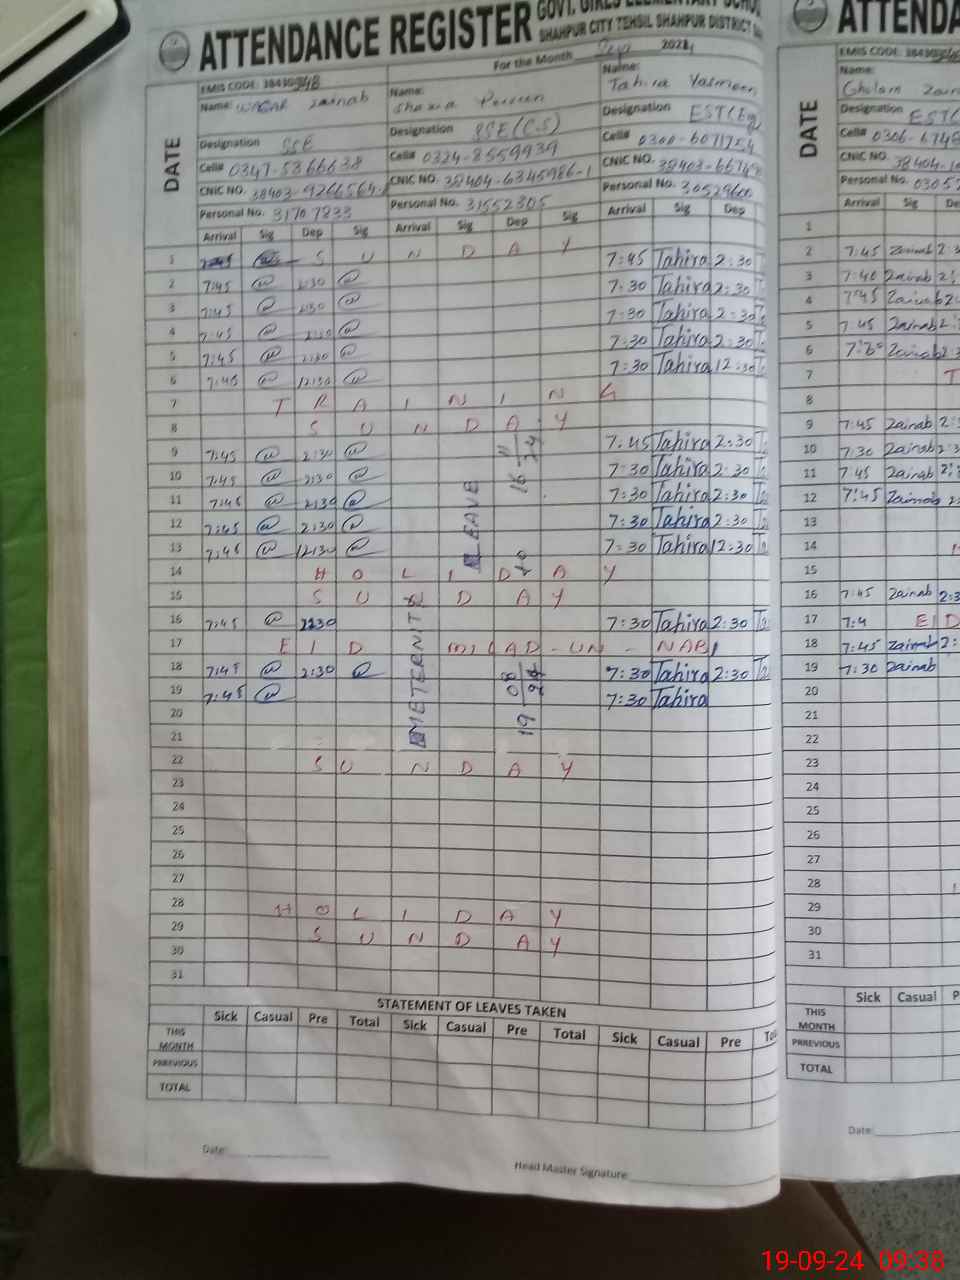 ATTENDANCE REGISTER GOVT. GIRLS ELEMENTARY SCHOOL
SHAHPUR CITY TEHSIL SHAHPUR DISTRICT
For the Month 2024
DATE
EMIS CODE: 38430348
Name: Waqar Zainab
Designation SSE
Cell# 0347-5366638
CNIC NO. 38403-9266564-
Personal No. 31707233
Name: Shazia Perveen
Designation SSE (C.S)
Cell# 0324-8559939
CNIC NO. 38404-6345986-1
Personal No. 31552305
Name: Tahira Yasmeen
Designation EST(Eg
Cell# 0300-6071754
CNIC NO. 38403-66748
Personal No. 30529600
Arrival Sig Dep Sig Arrival Sig Dep Sig Arrival Sig Dep
1 7:45 S U N D A Y 7:45 Tahira 2:30
2 7:45 2:30 7:30 Tahira 2:30
3 7:45 2:30 7:30 Tahira 2:30
4 7:45 2:30 7:30 Tahira 2:30
5 7:45 2:30 7:30 Tahira 12:30
6 7:45 12:30
7 T R A I N I N G
8 S U N D A Y
9 7:45 2:30 7:45 Tahira 2:30
10 7:45 2:30 7:30 Tahira 2:30
11 7:45 2:30 7:30 Tahira 2:30
12 7:45 2:30 7:30 Tahira 2:30
13 7:45 12:30 7:30 Tahira 12:30
14 H O L I D A Y
15 S U N D A Y
16 7:45 2:30 7:30 Tahira 2:30
17 E I D MILAD-UN-NABI
18 7:45 2:30 7:30 Tahira 2:30
19 7:45 7:30 Tahira
20
21
22 S U N D A Y
23
24
25
26
27
28 H O L I D A Y
29 S U N D A Y
30
31
METERNITY LEAVE
19 08 24 to 16 11 24
STATEMENT OF LEAVES TAKEN
Sick Casual Pre Total Sick Casual Pre Total Sick Casual Pre
THIS MONTH
PRREVIOUS
TOTAL
Date:
Head Master Signature
ATTENDA
DATE
EMIS CODE:
Name: Ghulam
Designation EST
Cell# 0306-6748
CNIC NO. 38404-
Personal No. 0305
Arrival Sig
1
2 7:45 Zainab
3 7:40 Zainab
4 7:45 Zainab
5 7:45 Zainab
6 Zainab
7 T
8
9 7:45 Zainab
10 7:30 Zainab
11 7:45 Zainab
12 7:45 Zainab
13
14
15
16 7:45 Zainab 2:3
17 7:4 E I D
18 7:45 Zainab
19 7:30 Zainab
20
21
22
23
24
25
26
27
28
29
30
31
Sick Casual
THIS MONTH
PRREVIOUS
TOTAL
Date:
19-09-24 09:38